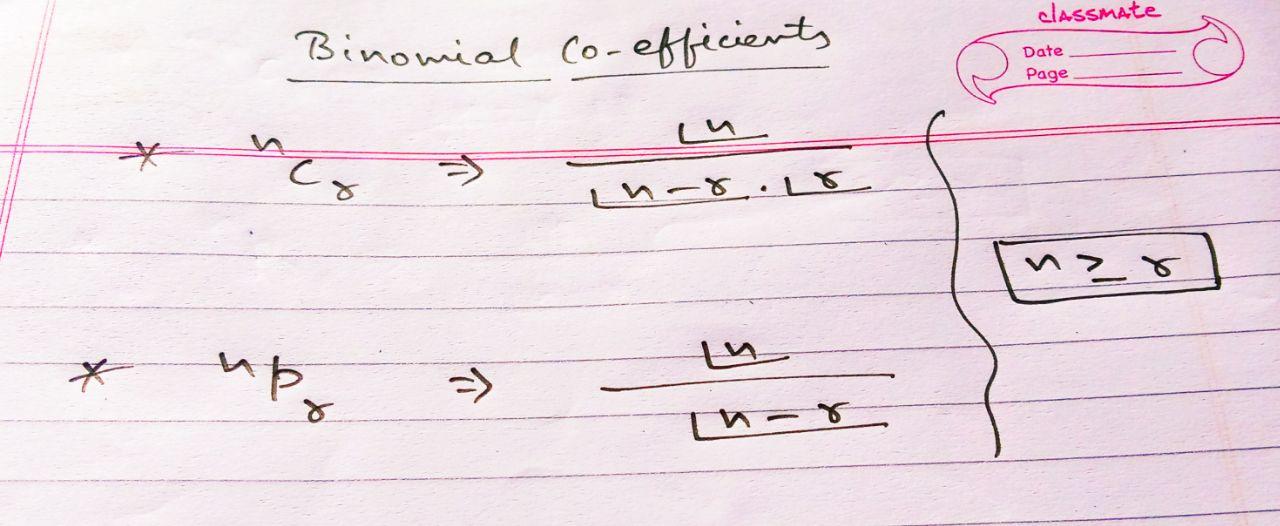 classmate
Date
Page
Binomial Co-efficients
* ⁿCᵣ ⇒ ∟n / ∟n-r . ∟r
n ≥ r
* ⁿpᵣ ⇒ ∟n / ∟n-r